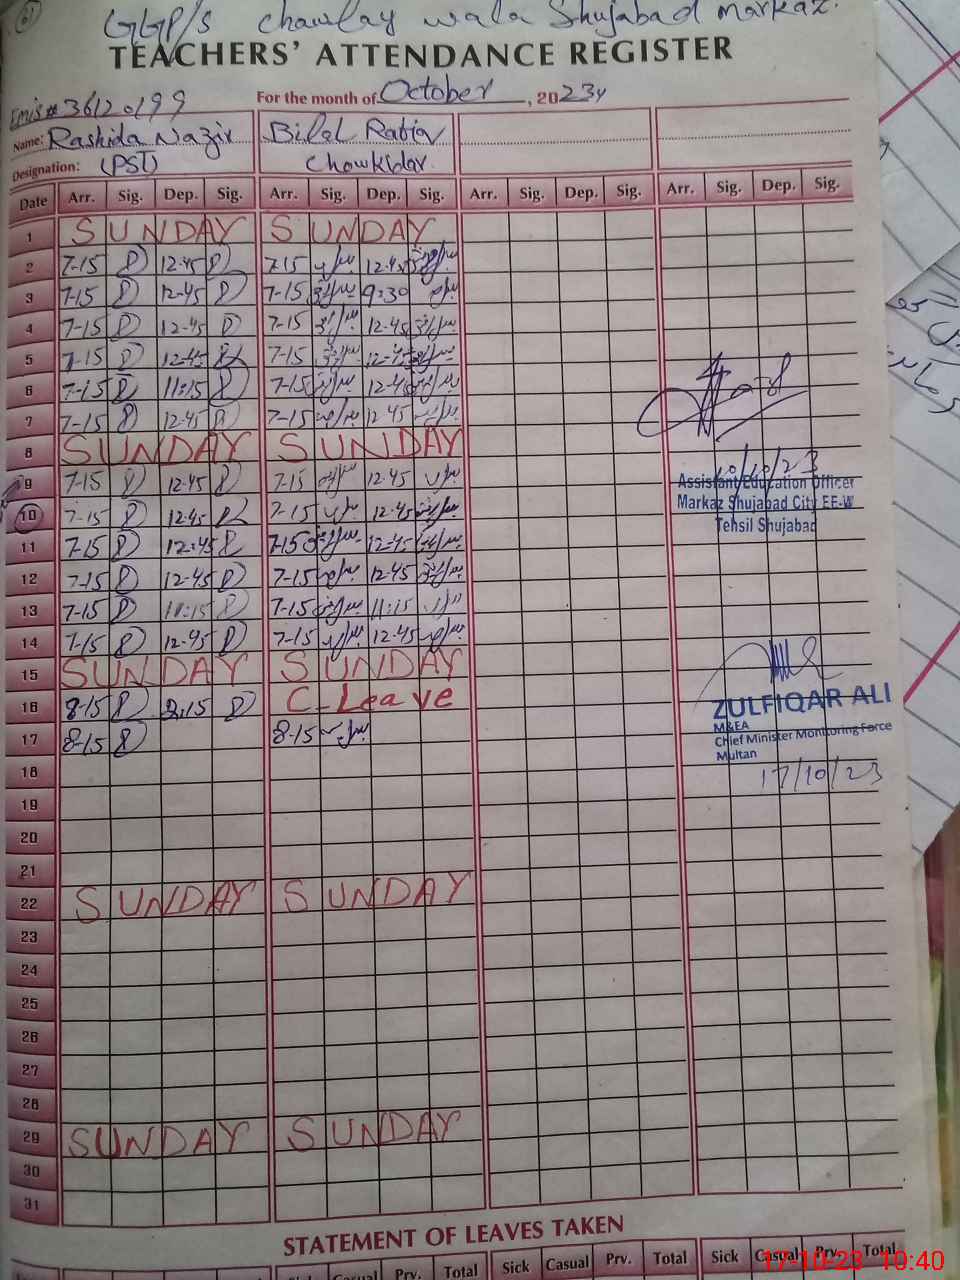 GGP/S chawlay wala Shujabad markaz.
TEACHERS' ATTENDANCE REGISTER
Emis # 36120199 For the month of October, 2023
Name: Rashida Nazir Bilal Rabia
Designation: (PST) Chowkidar
Date Arr. Sig. Dep. Sig. Arr. Sig. Dep. Sig. Arr. Sig. Dep. Sig. Arr. Sig. Dep. Sig.
1 SUNDAY SUNDAY
2 7-15 12-45 7-15 12-45
3 7-15 12-45 7-15 9:30
4 7-15 12-45 7-15 12-45
5 7-15 12-45 7-15 12-45
6 7-15 11:15 7-15 12-45
7 7-15 12-45 7-15 12-45
8 SUNDAY SUNDAY
9 7-15 12-45 7-15 12-45
10 7-15 12-45 7-15 12-45
11 7-15 12:45 7-15 12-45
12 7-15 12-45 7-15 12-45
13 7-15 11:15 7-15 11:15
14 7-15 12-45 7-15 12-45
15 SUNDAY SUNDAY
16 8-15 2.15 C-Leave
17 8-15 8-15
18
19
20
21
22 SUNDAY SUNDAY
23
24
25
26
27
28
29 SUNDAY SUNDAY
30
31
10/10/23
Assistant Education Officer
Markaz Shujabad City EE-W
Tehsil Shujabad
ZULFIQAR ALI
M&EA
Chief Minister Monitoring Force
Multan
17/10/23
STATEMENT OF LEAVES TAKEN
Sick Casual Prv. Total Sick Casual Prv. Total Sick Casual Prv. Total
17-10-23 10:40